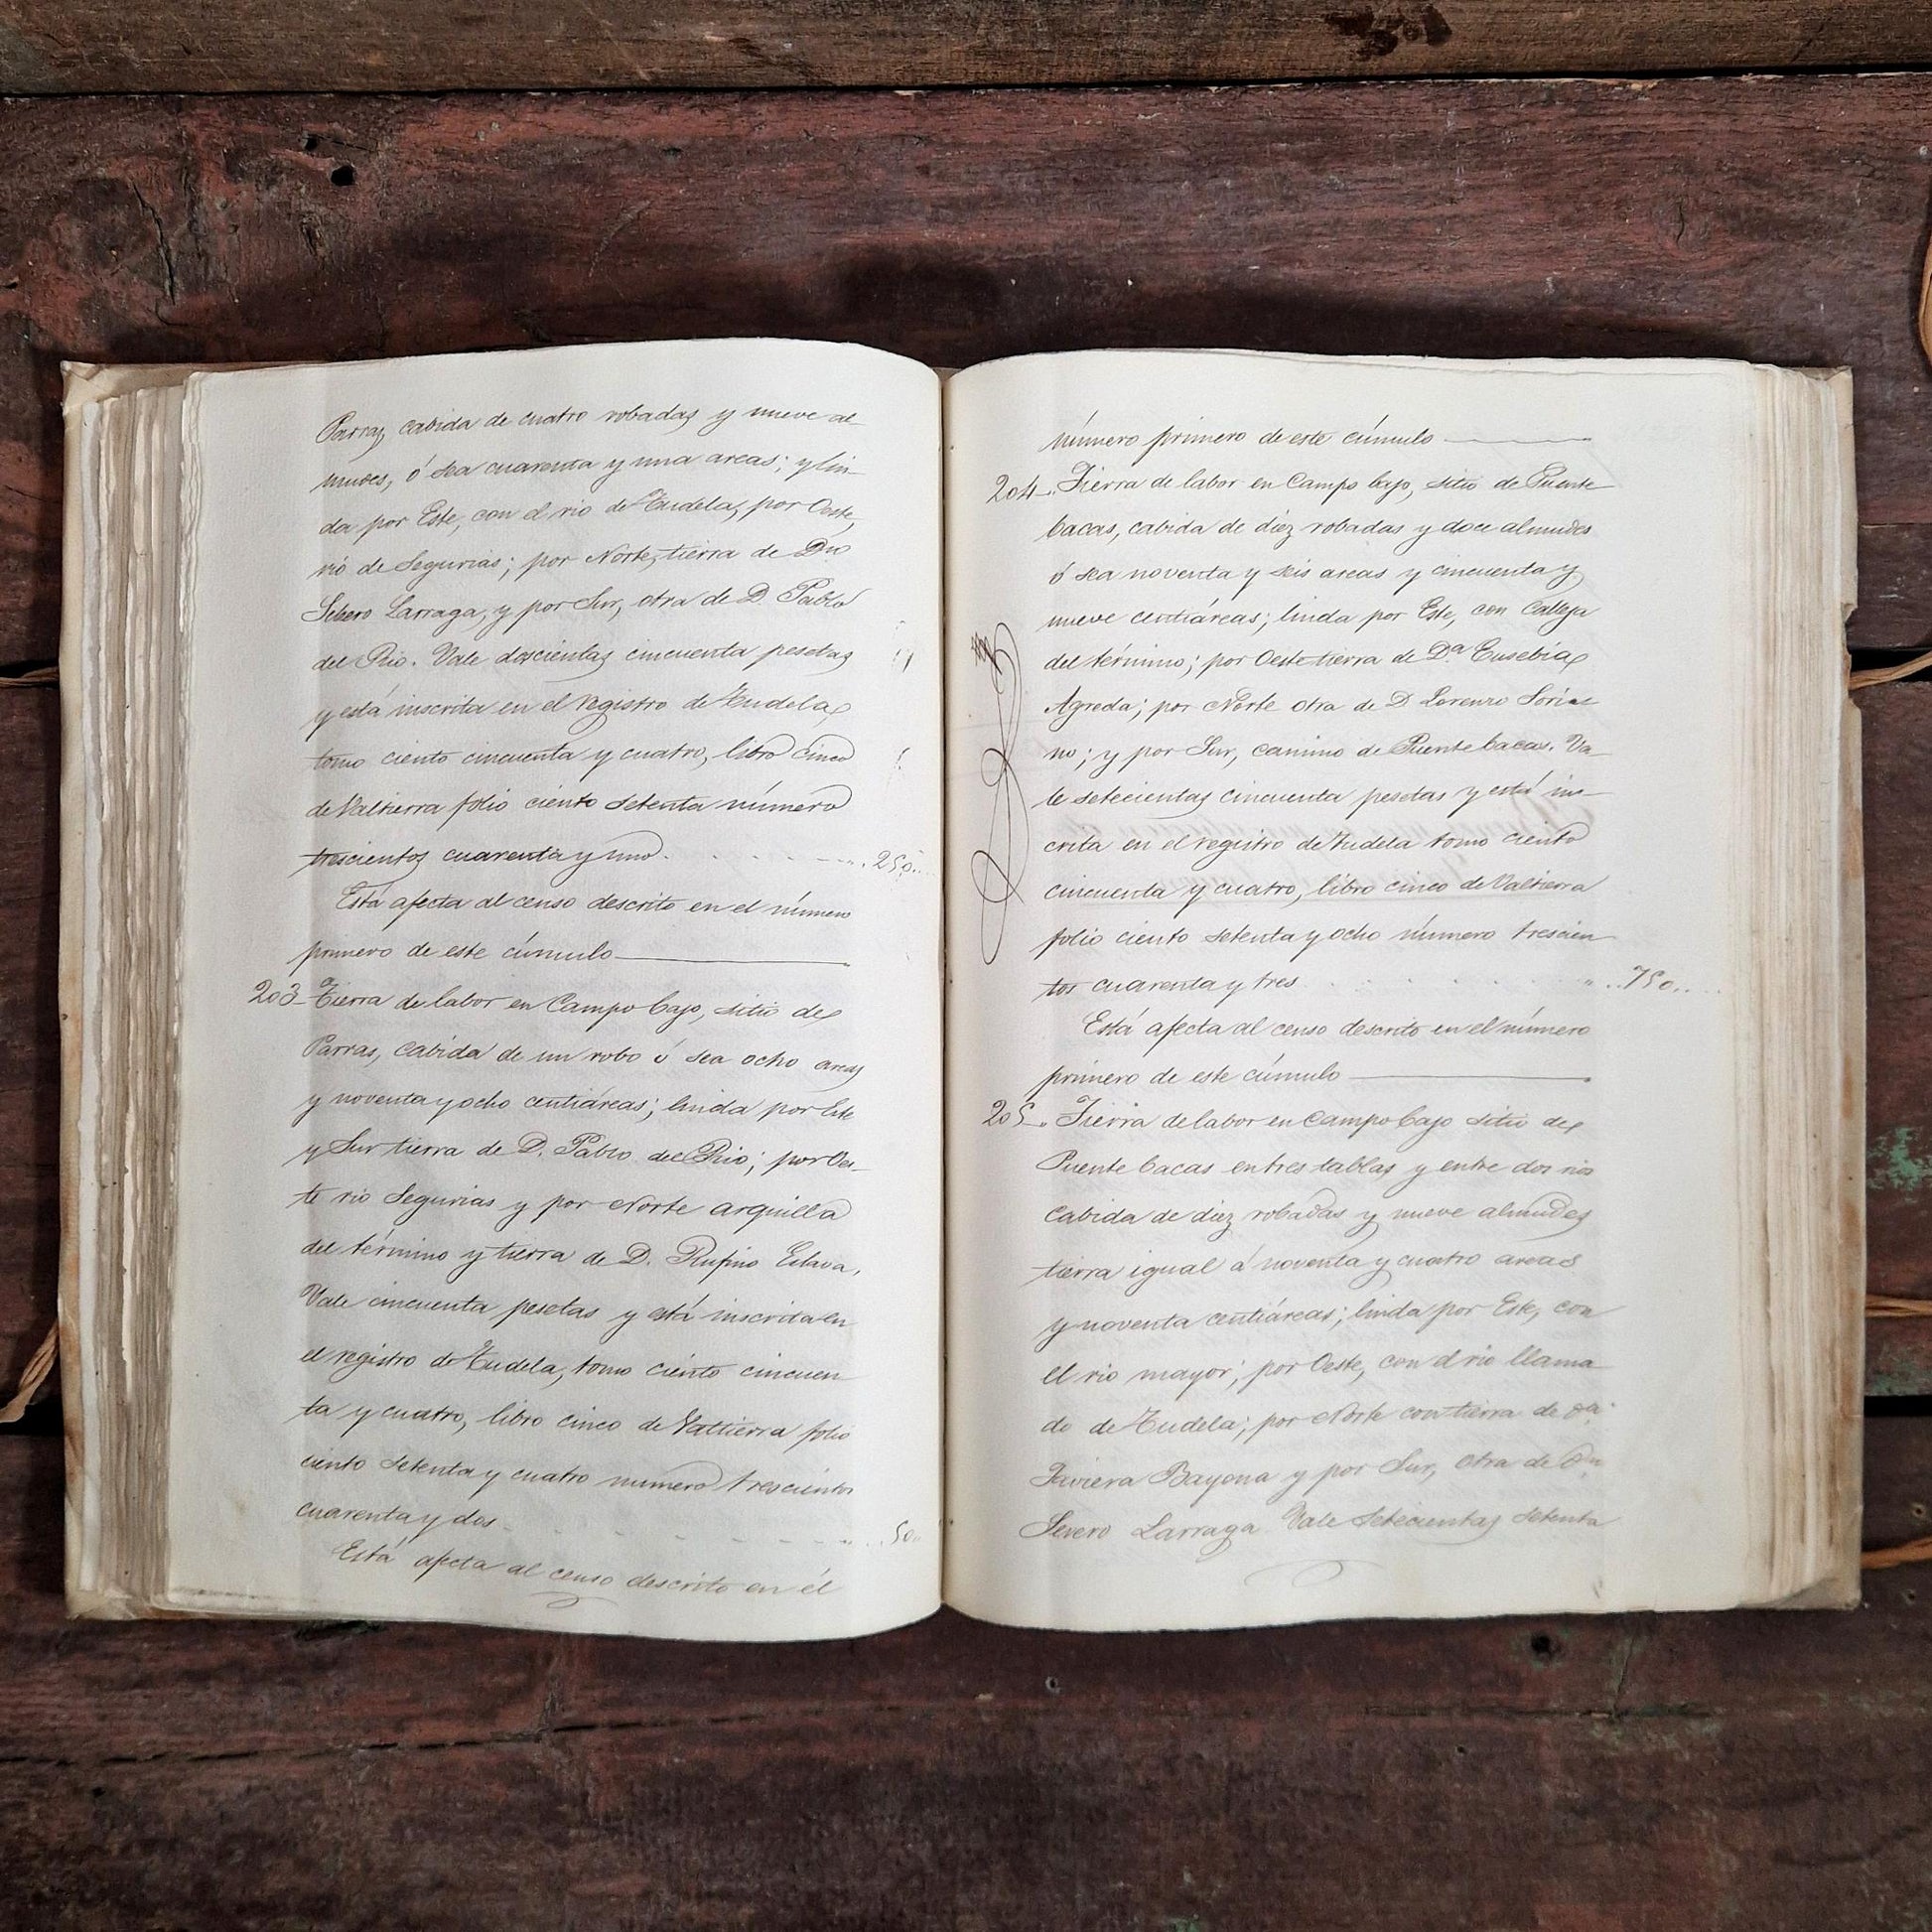 Parras, cabida de cuatro robadas y nueve al-
mudes, ó sea cuarenta y una areas; y lin-
da por Este, con el rio de Tudela, por Oeste,
rió de Segurias; por Norte, tierra de Dn
Sebero Larraga, y por Sur, otra de D. Pablo
del Rio. Vale doscientas cincuenta pesetas
y está inscrita en el registro de Tudela,
tomo ciento cincuenta y cuatro, libro cinco
de Valtierra folio ciento setenta número
trescientos cuarenta y uno. . . . . . . 250..
Está afecta al censo descrito en el número
primero de este cúmulo
203- Tierra de labor en Campo bajo, sitio de
Parras, cabida de un robo ó sea ocho areas
y noventa y ocho centiáreas; linda por Este
y Sur tierra de D. Pablo del Rio; por Oes-
te rio Segurias y por Norte arquilla
del término y tierra de D. Rufino Eslava,
Vale cincuenta pesetas y está inscrita en
el registro de Tudela, tomo ciento cincuen-
ta y cuatro, libro cinco de Valtierra folio
ciento setenta y cuatro numero trescientos
cuarenta y dos - - - - - - .. 50..
Está afecta al censo descrito en él
número primero de este cúmulo
204-. Tierra de labor en Campo bajo, sitio de Puente
bacas, cabida de diez robadas y doce almudes
ó sea noventa y seis areas y cincuenta y
nueve centiáreas; linda por Este, con Calleja
del término; por Oeste tierra de D.ª Eusebia
Agreda; por Norte otra de D Lorenzo Soria-
no; y por Sur, camino de Puente bacas. Va-
le setecientas cincuenta pesetas y está ins-
crita en el registro de Tudela tomo ciento
cincuenta y cuatro, libro cinco de Valtierra
folio ciento setenta y ocho número trescien-
tos cuarenta y tres . . . . . . . 750..
Está afecta al censo descrito en el número
primero de este cúmulo
205-. Tierra de labor en Campo bajo sitio de
Puente bacas en tres tablas y entre dos rios
cabida de diez robadas y nueve almudes
tierra igual á noventa y cuatro areas
y noventa centiáreas; linda por Este, con
el rio mayor; por Oeste, con el rio llama-
do de Tudela; por Norte con tierra de Dª
Javiera Bayona y por Sur, otra de Dn
Severo Larraga Vale setecientas setenta